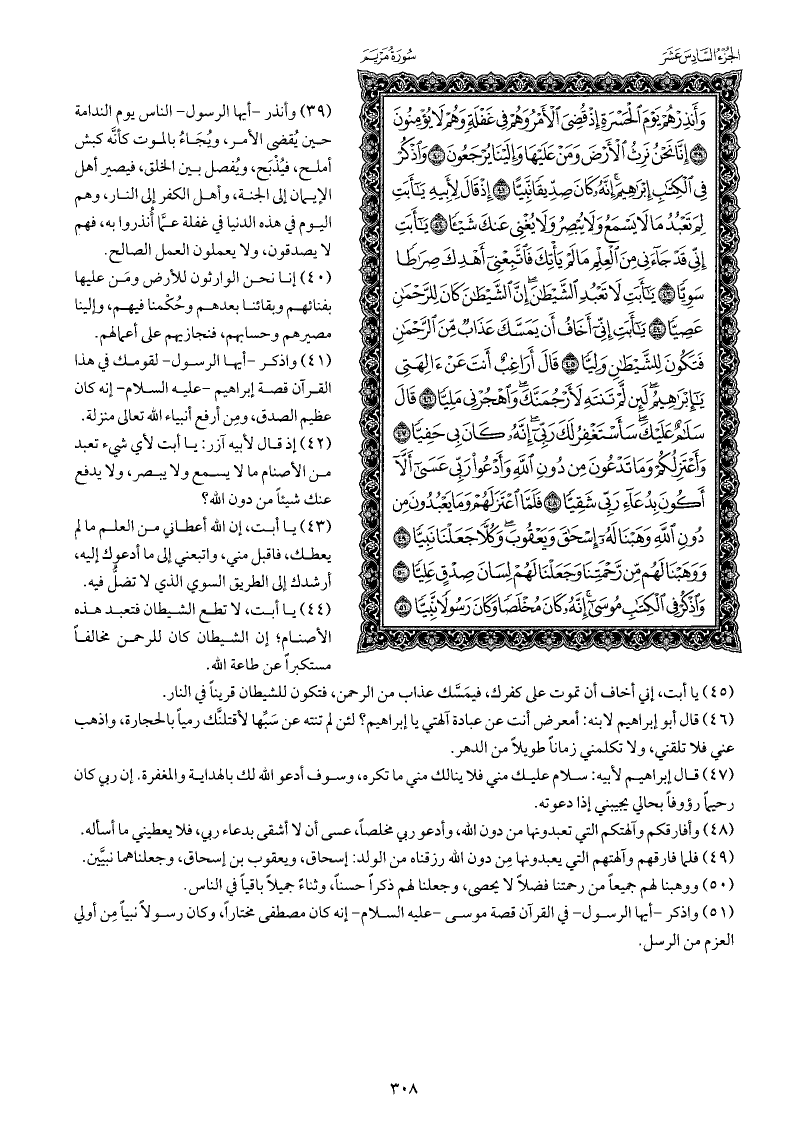 الجُزءُ السَّادِسَ عَشَرَ
سُورَةُ مَرْيَمَ
وَأَنذِرْهُمْ يَوْمَ ٱلْحَسْرَةِ إِذْ قُضِىَ ٱلْأَمْرُ وَهُمْ فِى غَفْلَةٍ وَهُمْ لَا يُؤْمِنُونَ
٣٩ إِنَّا نَحْنُ نَرِثُ ٱلْأَرْضَ وَمَنْ عَلَيْهَا وَإِلَيْنَا يُرْجَعُونَ ٤٠ وَٱذْكُرْ
فِى ٱلْكِتَٰبِ إِبْرَٰهِيمَ إِنَّهُۥ كَانَ صِدِّيقًا نَّبِيًّا ٤١ إِذْ قَالَ لِأَبِيهِ يَٰٓأَبَتِ
لِمَ تَعْبُدُ مَا لَا يَسْمَعُ وَلَا يُبْصِرُ وَلَا يُغْنِى عَنكَ شَيْـًٔا ٤٢ يَٰٓأَبَتِ
إِنِّى قَدْ جَآءَنِى مِنَ ٱلْعِلْمِ مَا لَمْ يَأْتِكَ فَٱتَّبِعْنِىٓ أَهْدِكَ صِرَٰطًا
سَوِيًّا ٤٣ يَٰٓأَبَتِ لَا تَعْبُدِ ٱلشَّيْطَٰنَ إِنَّ ٱلشَّيْطَٰنَ كَانَ لِلرَّحْمَٰنِ
عَصِيًّا ٤٤ يَٰٓأَبَتِ إِنِّىٓ أَخَافُ أَن يَمَسَّكَ عَذَابٌ مِّنَ ٱلرَّحْمَٰنِ
فَتَكُونَ لِلشَّيْطَٰنِ وَلِيًّا ٤٥ قَالَ أَرَاغِبٌ أَنتَ عَنْ ءَالِهَتِى
يَٰٓإِبْرَٰهِيمُ لَئِن لَّمْ تَنتَهِ لَأَرْجُمَنَّكَ وَٱهْجُرْنِى مَلِيًّا ٤٦ قَالَ
سَلَٰمٌ عَلَيْكَ سَأَسْتَغْفِرُ لَكَ رَبِّىٓ إِنَّهُۥ كَانَ بِى حَفِيًّا ٤٧
وَأَعْتَزِلُكُمْ وَمَا تَدْعُونَ مِن دُونِ ٱللَّهِ وَأَدْعُوا۟ رَبِّى عَسَىٰٓ أَلَّآ
أَكُونَ بِدُعَآءِ رَبِّى شَقِيًّا ٤٨ فَلَمَّا ٱعْتَزَلَهُمْ وَمَا يَعْبُدُونَ مِن
دُونِ ٱللَّهِ وَهَبْنَا لَهُۥٓ إِسْحَٰقَ وَيَعْقُوبَ وَكُلًّا جَعَلْنَا نَبِيًّا ٤٩
وَوَهَبْنَا لَهُم مِّن رَّحْمَتِنَا وَجَعَلْنَا لَهُمْ لِسَانَ صِدْقٍ عَلِيًّا ٥٠
وَٱذْكُرْ فِى ٱلْكِتَٰبِ مُوسَىٰٓ إِنَّهُۥ كَانَ مُخْلَصًا وَكَانَ رَسُولًا نَّبِيًّا ٥١
(٣٩) وأنذر –أيها الرسول– الناس يوم الندامة
حين يُقضى الأمر، ويُجَاءُ بالموت كأنَّه كبش
أملح، فيُذْبَح، ويُفصل بين الخلق، فيصير أهل
الإيمان إلى الجنة، وأهل الكفر إلى النار، وهم
اليوم في هذه الدنيا في غفلة عمَّا أُنذروا به، فهم
لا يصدقون، ولا يعملون العمل الصالح.
(٤٠) إنا نحن الوارثون للأرض ومَن عليها
بفنائهم وبقائنا بعدهم وحُكْمنا فيهم، وإلينا
مصيرهم وحسابهم، فنجازيهم على أعمالهم.
(٤١) واذكر –أيها الرسول– لقومك في هذا
القرآن قصة إبراهيم –عليه السلام– إنه كان
عظيم الصدق، ومِن أرفع أنبياء الله تعالى منزلة.
(٤٢) إذ قال لأبيه آزر: يا أبت لأي شيء تعبد
من الأصنام ما لا يسمع ولا يبصر، ولا يدفع
عنك شيئاً من دون الله؟
(٤٣) يا أبت، إن الله أعطاني من العلم ما لم
يعطك، فاقبل مني، واتبعني إلى ما أدعوك إليه،
أرشدك إلى الطريق السوي الذي لا تضلُّ فيه.
(٤٤) يا أبت، لا تطع الشيطان فتعبد هذه
الأصنام؛ إن الشيطان كان للرحمن مخالفاً
مستكبراً عن طاعة الله.
(٤٥) يا أبت، إني أخاف أن تموت على كفرك، فيمَسَّك عذاب من الرحمن، فتكون للشيطان قريناً في النار.
(٤٦) قال أبو إبراهيم لابنه: أمعرض أنت عن عبادة آلهتي يا إبراهيم؟ لئن لم تنته عن سَبِّها لأقتلنَّك رمياً بالحجارة، واذهب
عني فلا تلقني، ولا تكلمني زماناً طويلاً من الدهر.
(٤٧) قال إبراهيم لأبيه: سلام عليك مني فلا ينالك مني ما تكره، وسوف أدعو الله لك بالهداية والمغفرة. إن ربي كان
رحيماً رؤوفاً بحالي يجيبني إذا دعوته.
(٤٨) وأفارقكم وآلهتكم التي تعبدونها من دون الله، وأدعو ربي مخلصاً، عسى أن لا أشقى بدعاء ربي، فلا يعطيني ما أسأله.
(٤٩) فلما فارقهم وآلهتهم التي يعبدونها مِن دون الله رزقناه من الولد: إسحاق، ويعقوب بن إسحاق، وجعلناهما نبيَّين.
(٥٠) ووهبنا لهم جميعاً من رحمتنا فضلاً لا يحصى، وجعلنا لهم ذكراً حسناً، وثناءً جميلاً باقياً في الناس.
(٥١) واذكر –أيها الرسول– في القرآن قصة موسى –عليه السلام– إنه كان مصطفى مختاراً، وكان رسولاً نبياً مِن أولي
العزم من الرسل.
٣٠٨